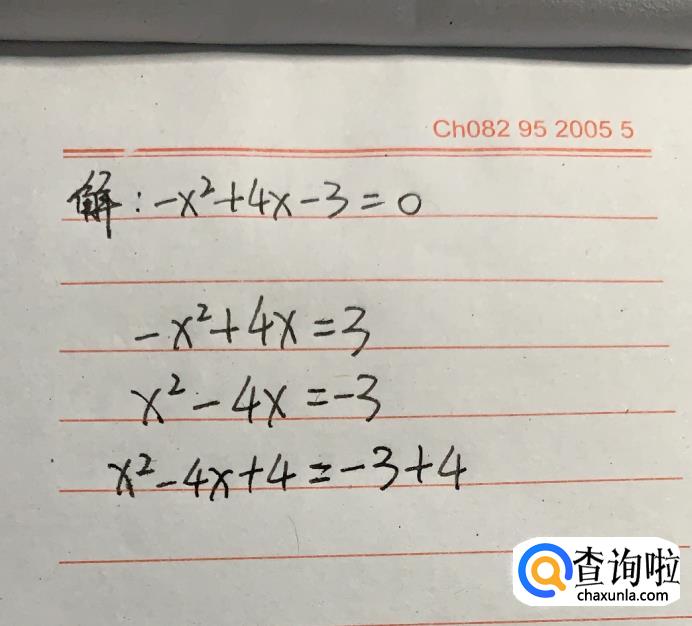 Ch082 95 2005 5
解：-x²+4x-3=0
-x²+4x=3
x²-4x=-3
x²-4x+4=-3+4
查询啦
chaxunla.com